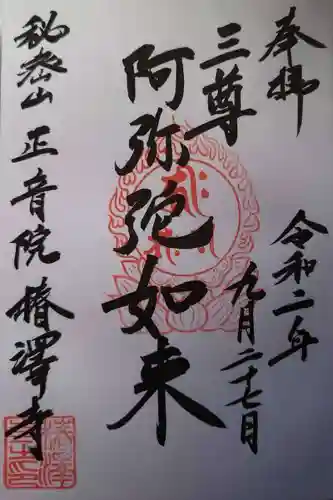 奉拝
令和二年
九月二十七日
三尊
阿弥陀如来
秘密山 正音院 椿澤寺